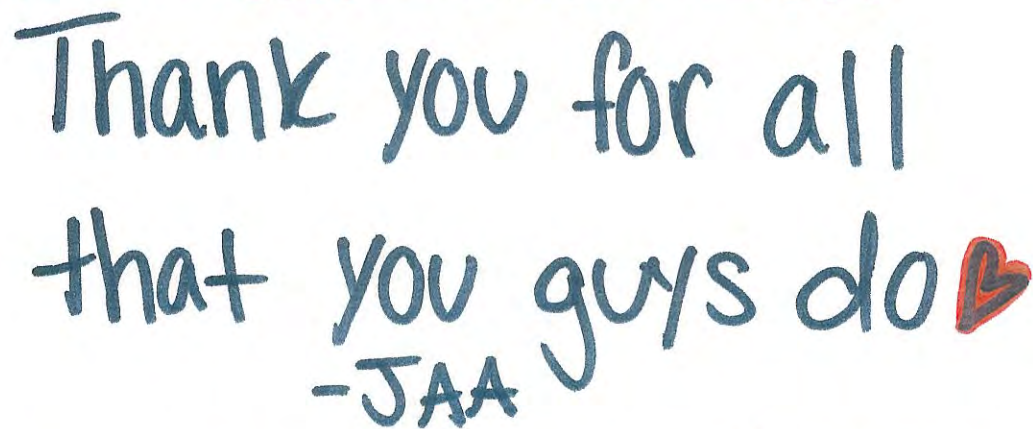 Thank you for all
that you guys do
-JAA